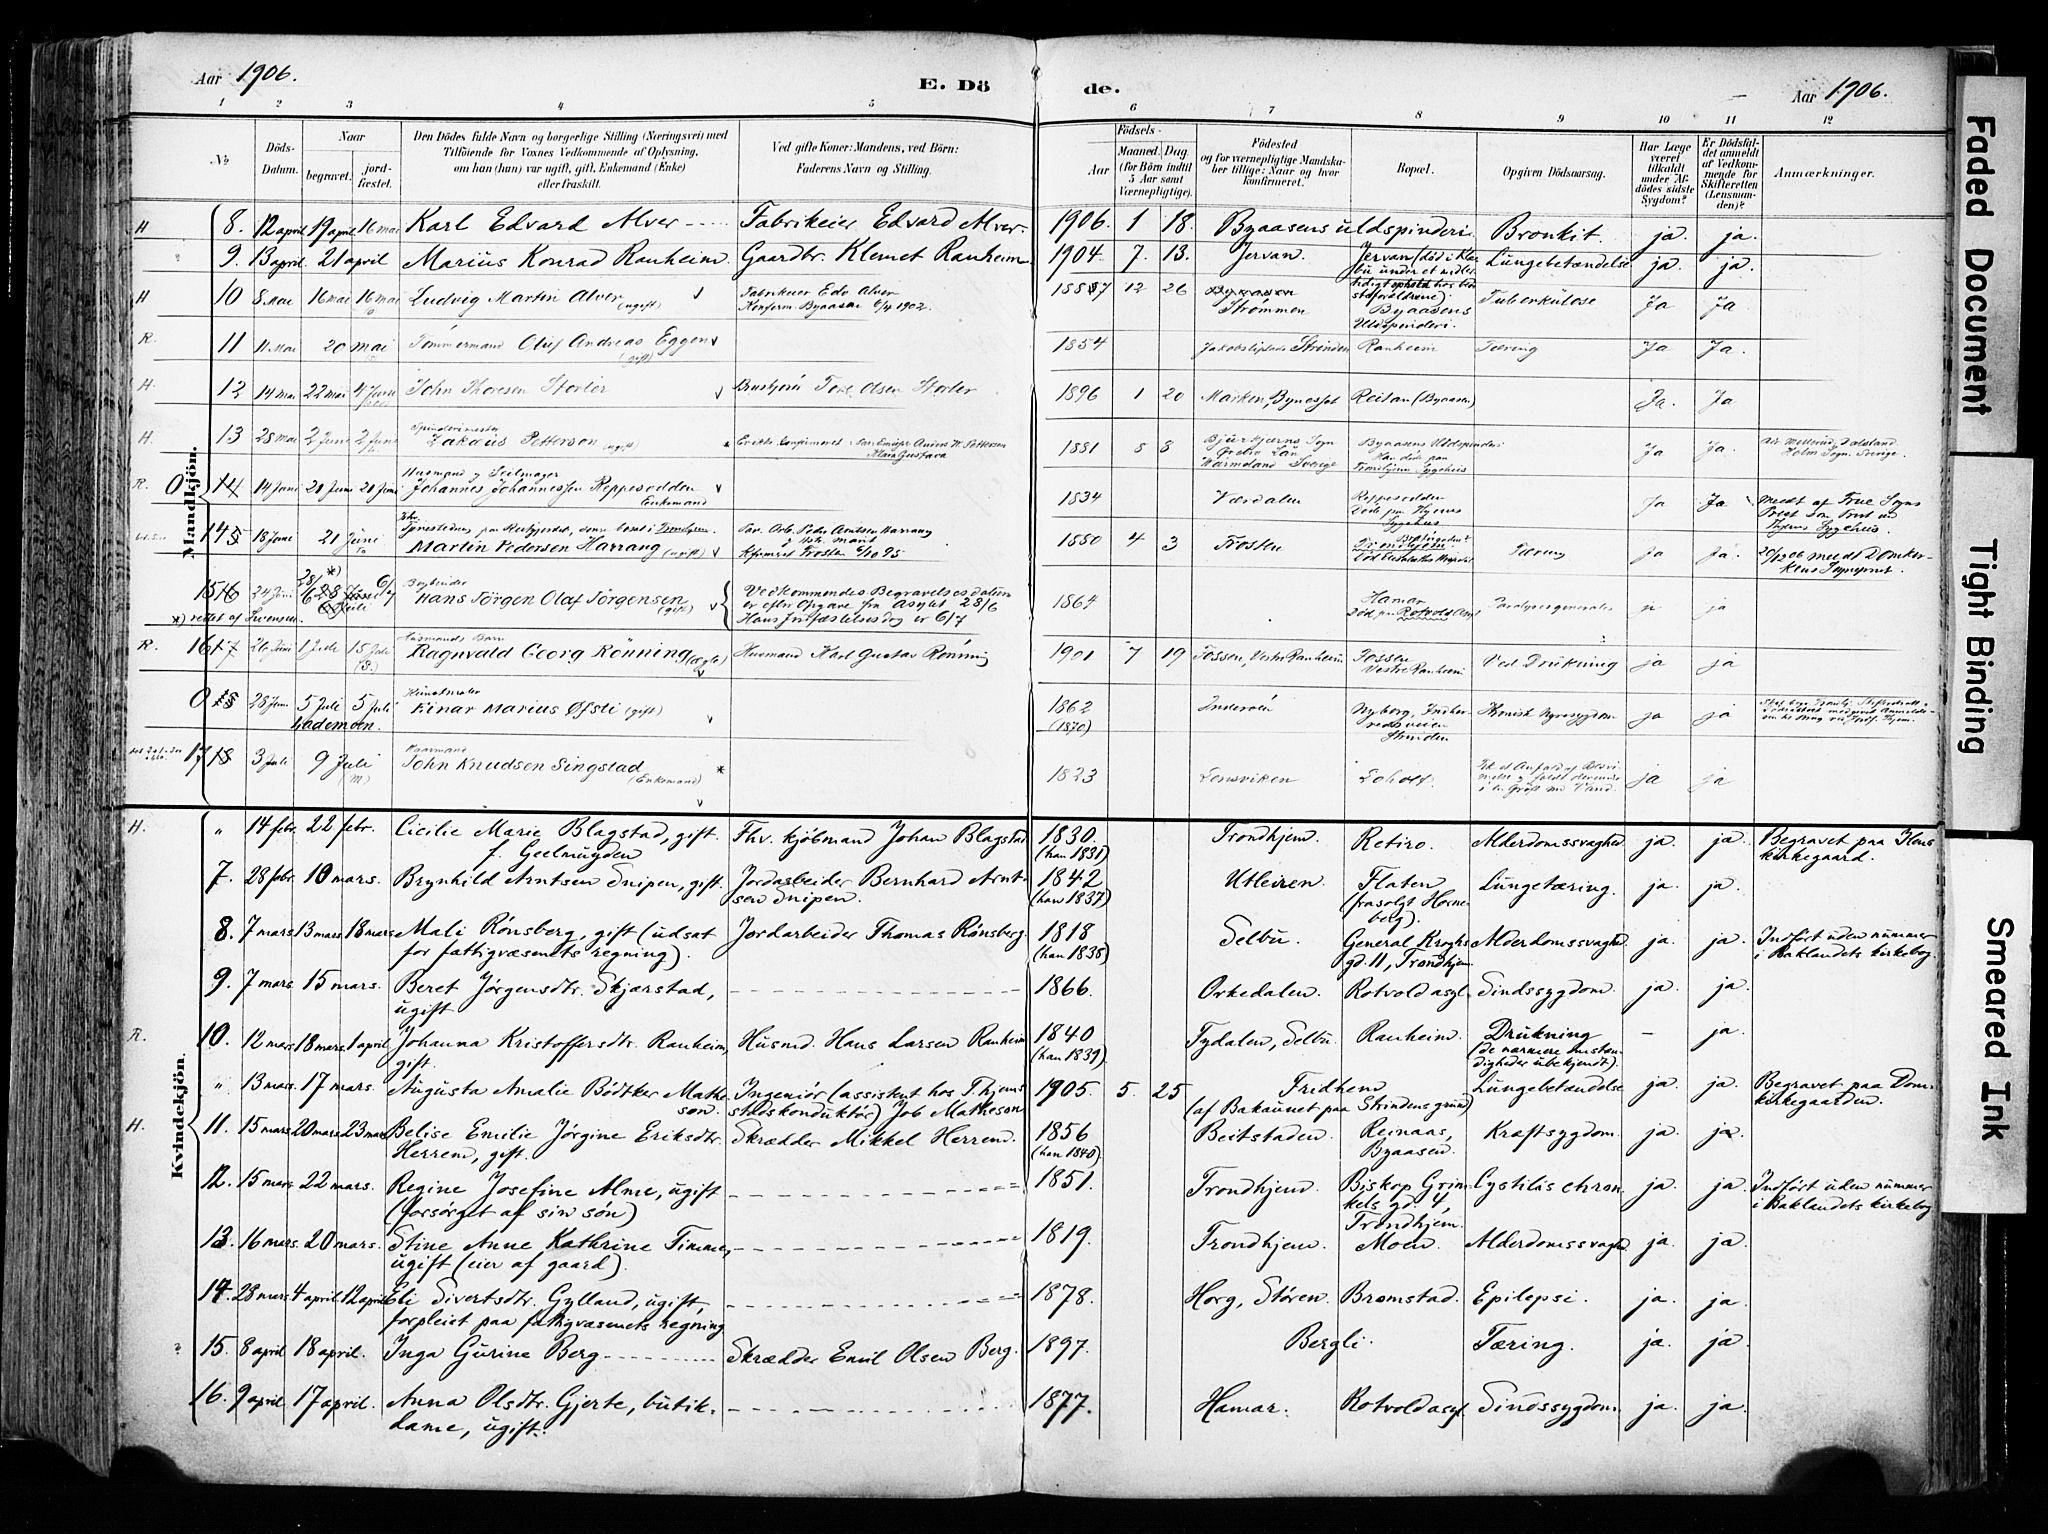 Aar 1906.
E. Dö
de.
Aar 1906.
1 2 3 4 5 6 7 8 9 10 11 12
No
Döds-Datum.
Naar
begravet. jordfæstet.
Den Dödes fulde Navn og borgerlige Stilling (Næringsvei) med
Tilföiende for Voxnes Vedkommende af Oplysning,
om han (hun) var ugift, gift, Enkemand (Enke)
eller fraskilt.
Ved gifte Koner: Mandens, ved Börn:
Faderens Navn og Stilling.
Födsels-
Aar
Maaned. Dag.
(for Börn indtil
5 Aar samt
Værnepligtige).
Födested
og for værnepligtige Mandska-
ber tillige: Naar og hvor
konfirmeret.
Bopæl.
Opgiven Dödsaarsag.
Har Læge
været
tilkaldt
under Af-
dödes sidste
Sygdom?
Er Dödsfal-
det anmeldt
af Vedkom-
mende for
Skifteretten
(Lensman-
den)?
Anmærkninger.
Mandkjön.
H 8. 12 april 19 april 16 mai Karl Edvard Alver Fabrikeier Edvard Alver. 1906. 1 18. Byaasens uldspinderi. Bronkit. ja. ja.
9. 13 april 21 april Marius Konrad Ranheim. Gaardbr. Klemet Ranheim 1904. 7. 13. Jervan. Jervan (död i Klæ-
bu under et midler- Lungebetændelse ja. ja.
H 10 8 Mai 16 mai 16 mai Ludvig Martin Alver (ugift) Fabrikeier Edv Alver
Konferm. Byaasen 6/4 1902. 12 26 Byaasen
Strømmen Byaasens
Uldspinderi. Tuberkulose Ja Ja
R. 11 11 Mai 20 mai Tömmermand Oluf Andreas Eggen (gift) 1854 Strinden Ranheim Tæring Ja Ja.
H. 12 14 Mai 22 mai 4 Juni John Thoresen Storler Tore Olsen Storler 1896 1 20 Marken, Bynesset Reitan (Byaasen) Ja. Ja
H. 13 28 Mai 2 Juni 2 Juni Spinderimester
Zakæus Petterson (ugift) 1881 5 8 Wärmeland Sverige Byaasens Uldspinderi
Han döde paa
Trondhjems Sygehus Ja Ja. Holm Sogn. Sverige.
R. 0 14 14 Juni 20 Juni 20 Juni Husmand og Seilmager
Johannes Johannessen Reppesodden
Enkemand 1834 Værdalen Reppesodden
Døde paa Thjems
Sygehus Ja Ja meldt af Frue Sogns
Prest som Prest ved
Thjems Sygehus.
14 18 Juni 21 Juni Martin Pedersen Harrang (ugift) 1880 4 3 Frosten Tæring Ja Ja. 20/12 06 meldt Domkir-
kens Sogneprest.
15 16 24 Juni 28/6 6/7 Hans Jörgen Olaf Jörgensen (gift) Vedkommendes Begravelsesdatum
er efter Opgave fra Asylet 28/6
Hans Jordfæstelsesdag er 6/7 1864 Hamar
Død paa Rotvold Asyl Paralyse generales ja ja
*) rettet af Svensen.
R. 16 17 26 Juni 1 Juli 15 Juli Husmands Barn
Ragnvald Georg Rönning (ægte) Husmand Karl Gustav Rönning 1901 7 19 Fossen, Vestre Ranheim Fossen
Vestre Ranheim Ved Drukning ja ja
0 18 28 Juni 5 Juli 5 Juli
Lademoen. Kunstmaler
Einar Marius Øfsti (gift) 1862
(1870) Inderöen Nyborg, Indher-
redsveien
Strinden Kronisk Nyresygdom ja ja
17 18 3 Juli 9 Juli
(M) Kaarmand
John Knudsen Singstad
(Enkemand) 1823 Lensviken Loholt. ja ja
Kvindekjön.
H. " 14 febr. 22 febr. Cicilie Marie Blagstad, gift.
f. Geelmuyden Fhv. kjöbmand Johan Blagstad 1830.
(han 1831) Trondhjem. Retiro. Alderdomssvaghed ja. ja. Begravet paa Ilens
kirkegaard.
7. 28 febr. 10 mars. Brynhild Arntsen Snipen, gift. Jordarbeider Bernhard Arnt-
sen Snipen. 1842
(han 1837) Utleiren. Flaten
(frasolgt Horne-
berg). Lungetæring. ja. ja.
8. 7 mars 13 mars 18 mars Mali Rönsberg, gift (udsat
for fattigvæsenets regning). Jordarbeider Thomas Rönsberg. 1818
(han 1838) Selbu. General Kroghs
gd. 11, Trondhjem. Alderdomssvaghed ja. ja. Indfört uden nummer
i Baklandets kirkebog.
9. 7 mars 15 mars. Beret Jörgensdtr. Skjærstad,
ugift 1866. Orkedalen. Rotvold asyl. Sindssygdom. ja. ja.
R. 10. 12 mars 18 mars 1 april Johanna Kristoffersdtr. Ranheim,
gift. Husmd. Hans Larsen Ranheim 1840
(han 1839). Tydalen, Selbu. Ranheim. Drukning
(de nærmere omstæn-
digheder ubekjendt). – ja.
" 13 mars. 17 mars. Augusta Amalie Bödtker Mathe-
son. Ingeniör (assistent hos T.hjems
stadskonduktör) Job Matheson 1905. 5. 25 Fridhem
(af Bakaunet paa Strindens grund) Lungebetændelse ja. ja. Begravet paa Dom-
kirkegaarden.
H. 11. 15 mars 20 mars 23 mars Belise Emilie Jörgine Eriksdtr.
Herrem, gift. Skrædder Mikkel Herrem. 1856
(han 1840). Beitstaden. Reinaas,
Byaasen. Kræftsygdom. ja. ja.
12. 15 mars. 22 mars. Regine Josefine Alme, ugift
(forsörget af sin sön) 1851. Trondhjem. Biskop Grim-
kels gd. 4,
Trondhjem. Cystilis chron. ja. ja. Indfört uden nummer
i Baklandets kirkebog
13. 16 mars. 20 mars. Stine Anne Kathrine Timme,
ugift (eier af gaard). 1819. Trondhjem. Moen. Alderdomssvaghed ja. ja.
14. 28 mars. 4 april. 12 april Eli Sivertsdtr. Gylland, ugift,
forpleiet paa fattigvæsenets regning 1878. Horg, Stören. Bromstad. Epilepsi. ja. ja.
15. 8 april 18 april. Inga Gurine Berg Skrædder Emil Olsen Berg. 1897. Bergli. Tæring. ja. ja.
16. 9 april 17 april. Anna Olsdtr. Gjerte, butik-
dame, ugift. 1877. Hamar. Rotvold asyl. Sindssygdom. ja. ja.
Faded Document
Tight Binding
Smeared Ink